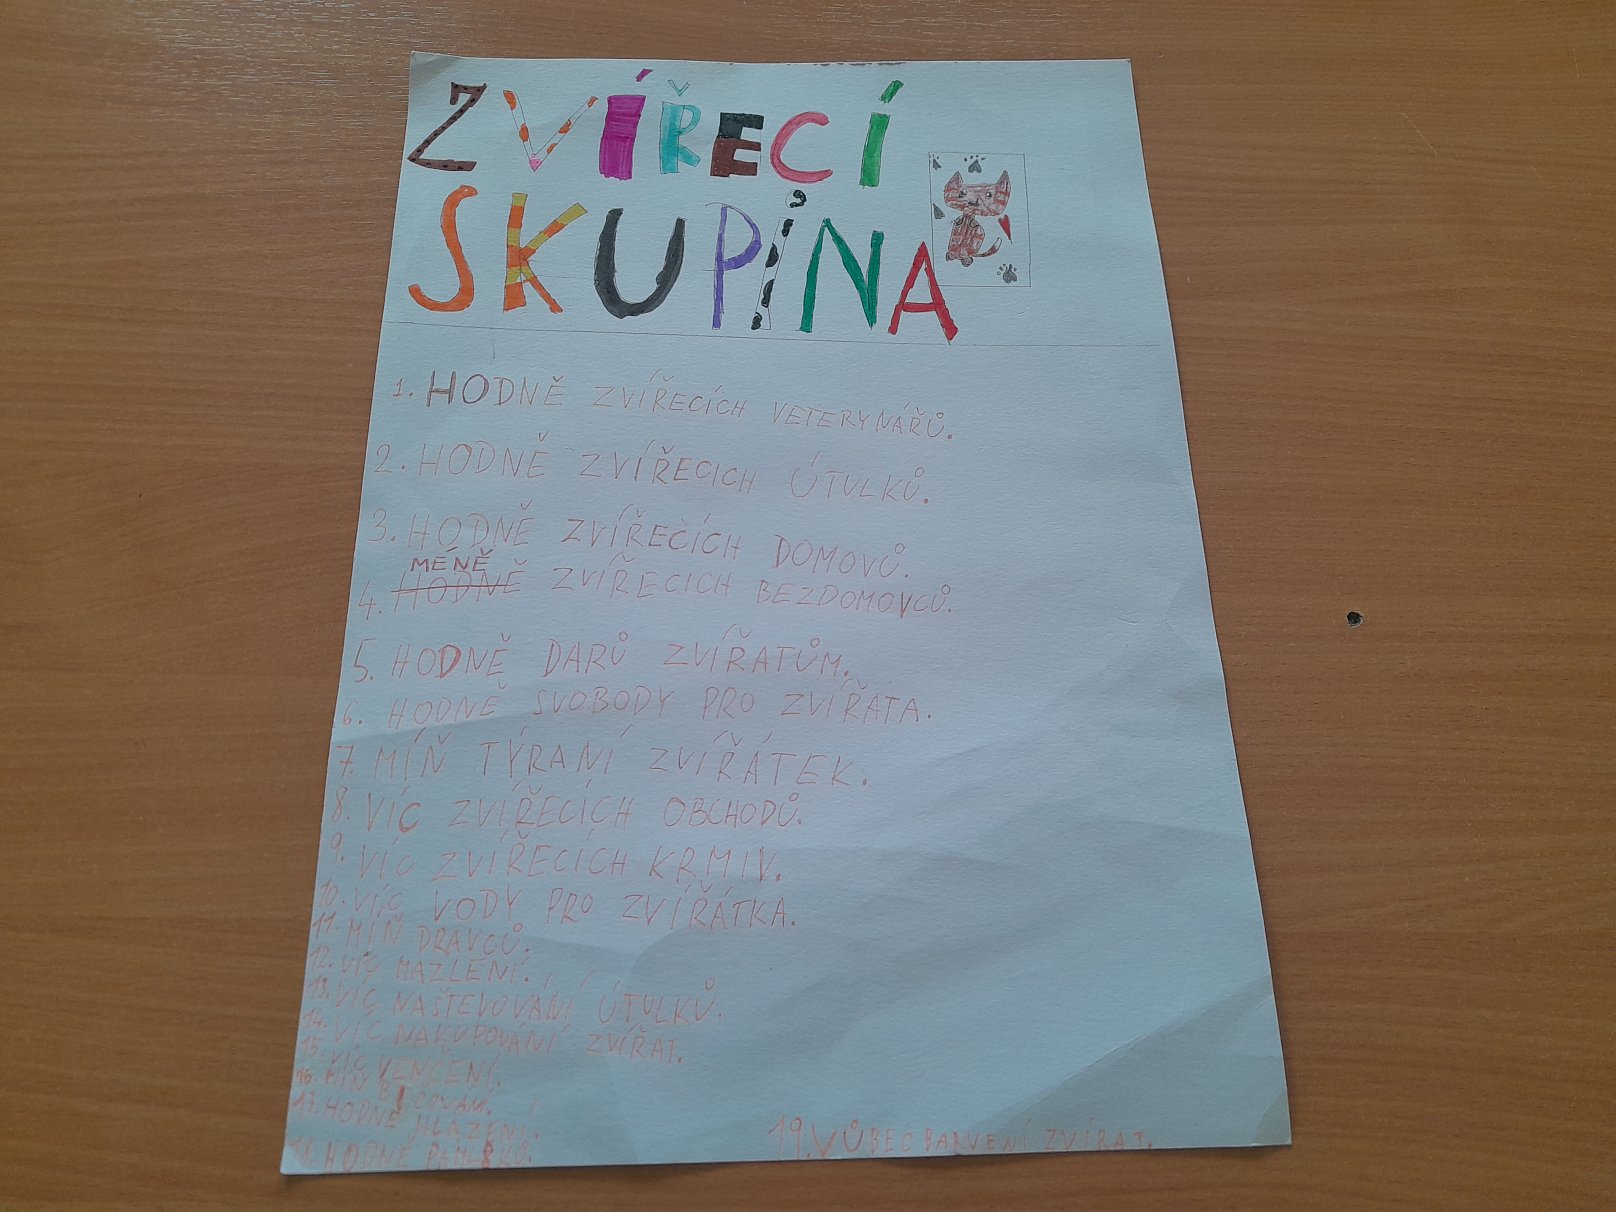 ZVÍŘECÍ
SKUPINA
1. HODNĚ ZVÍŘECÍCH VETERYNÁŘŮ.
2. HODNĚ ZVÍŘECICH ÚTULKŮ.
3. HODNĚ ZVÍŘECÍCH DOMOVŮ.
MÉNĚ
4. HODNĚ ZVÍŘECICH BEZDOMOVCŮ.
5. HODNĚ DARŮ ZVÍŘATŮM.
6. HODNĚ SVOBODY PRO ZVÍŘATA.
7. MÍŇ TÝRANÍ ZVÍŘÁTEK.
8. VÍC ZVÍŘECÍCH OBCHODŮ.
9. VÍC ZVÍŘECÍCH KRMIV.
10. VÍC VODY PRO ZVÍŘÁTKA.
11. MÍŇ DRAVCŮ.
12. VÍC MAZLENÍ.
13. VÍC NAŠTEVOVÁNÍ ÚTULKŮ.
14. VÍC NAKUPOVÁNÍ ZVÍŘAT.
15. VÍC VENČENÍ.
16. MÍŇ BIČOVÁNÍ.
17. HODNĚ HLAZENÍ.
18. HODNĚ PAMLSKŮ.
19. VŮBEC BARVENÍ ZVÍŘAT.